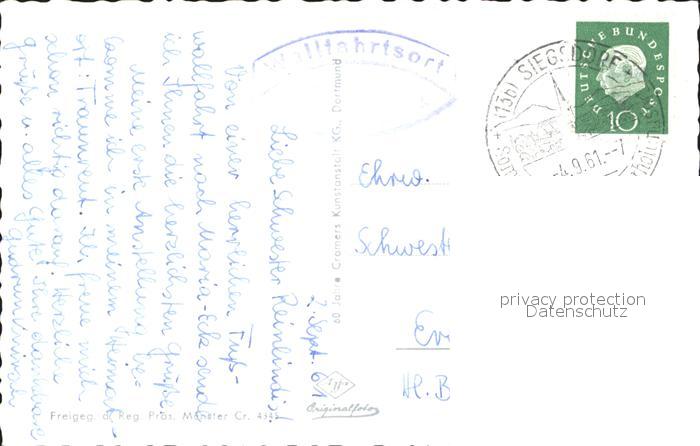 Wallfahrtsort
(13b) SIEGSDORF
-4.9.61.--7
DEUTSCHE BUNDESPOST
10
2. Sept. 61
Liebe Schwester Reinlindis!
Von einer herrlichen Fuß-
wallfahrt nach Maria-Eck sende
ich Ihnen die herzlichsten Grüße.
Meine erste Anstellung be-
komme ich in meinem Heimat-
ort: Traunreut. Ich freue mich
schon richtig darauf. Herzliche
Grüße u. alles Gute! Ihre dankbare
60 Jahre Cramers Kunstanstalt KG., Dortmund
Ehrw.
Schwest
Hl. B
privacy protection
Datenschutz
Originalfoto
Freigeg. d. Reg. Präs. Münster Cr. 4345